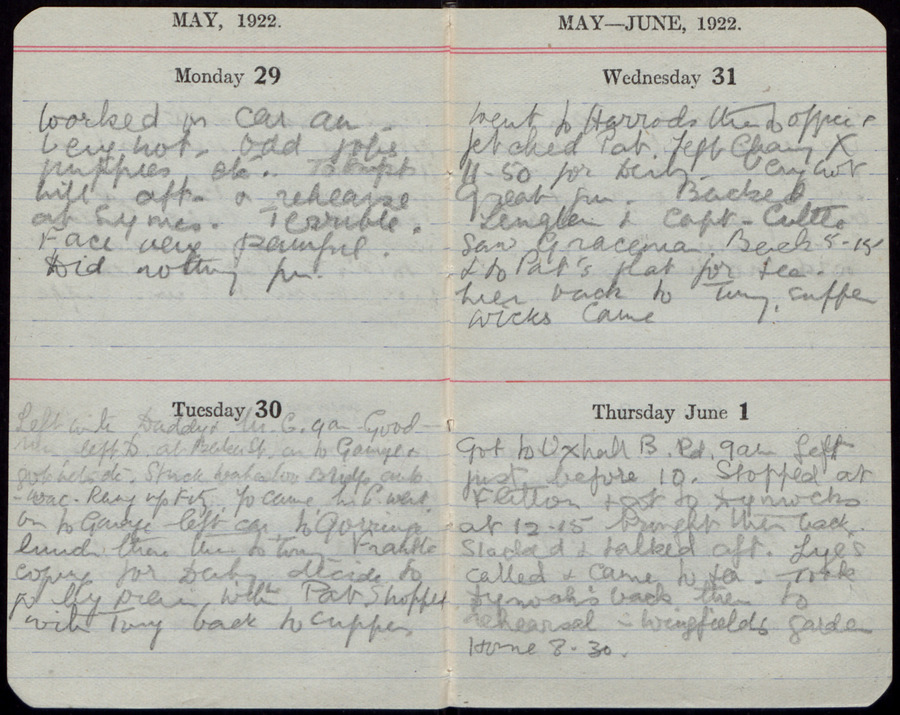 MAY, 1922.
Monday 29
Worked on car am.
Very hot. Odd jobs
puppies etc.
hill aft. a rehearse
at Symes. Terrible.
Face very painful.
Did nothing pm.
Tuesday 30
Left with Daddy & Mr C. 9 am Good
run left D. at Baker St, on to Garage &
got . Stuck Bridge
Rang up Pat. Jo came Mr C. went
on to Garage left car to Gorringe
lunch then to Tony
coping for Derby decide to
go by train with Pat. Shopped
with Tony back to supper
MAY—JUNE, 1922.
Wednesday 31
Went to Harrods then to office
fetched Pat. Left Charing X
11-50 for Derby. Very hot
Great fun. Backed
Lenglen & Capt. Cuttle
Saw Back 5-15
& to Pat's flat for tea.
then back to Tony, supper
Wicks came
Thursday June 1
Got to Vxhall B. Rd. 9 am Left
just before 10. Stopped at
Flitton & got to Dymocks
at 12-15 brought them back.
Slacked & talked aft. Lye's
called & came to tea. Took
Dymock's back then to
rehearsal in Wingfields garden
Home 8-30.